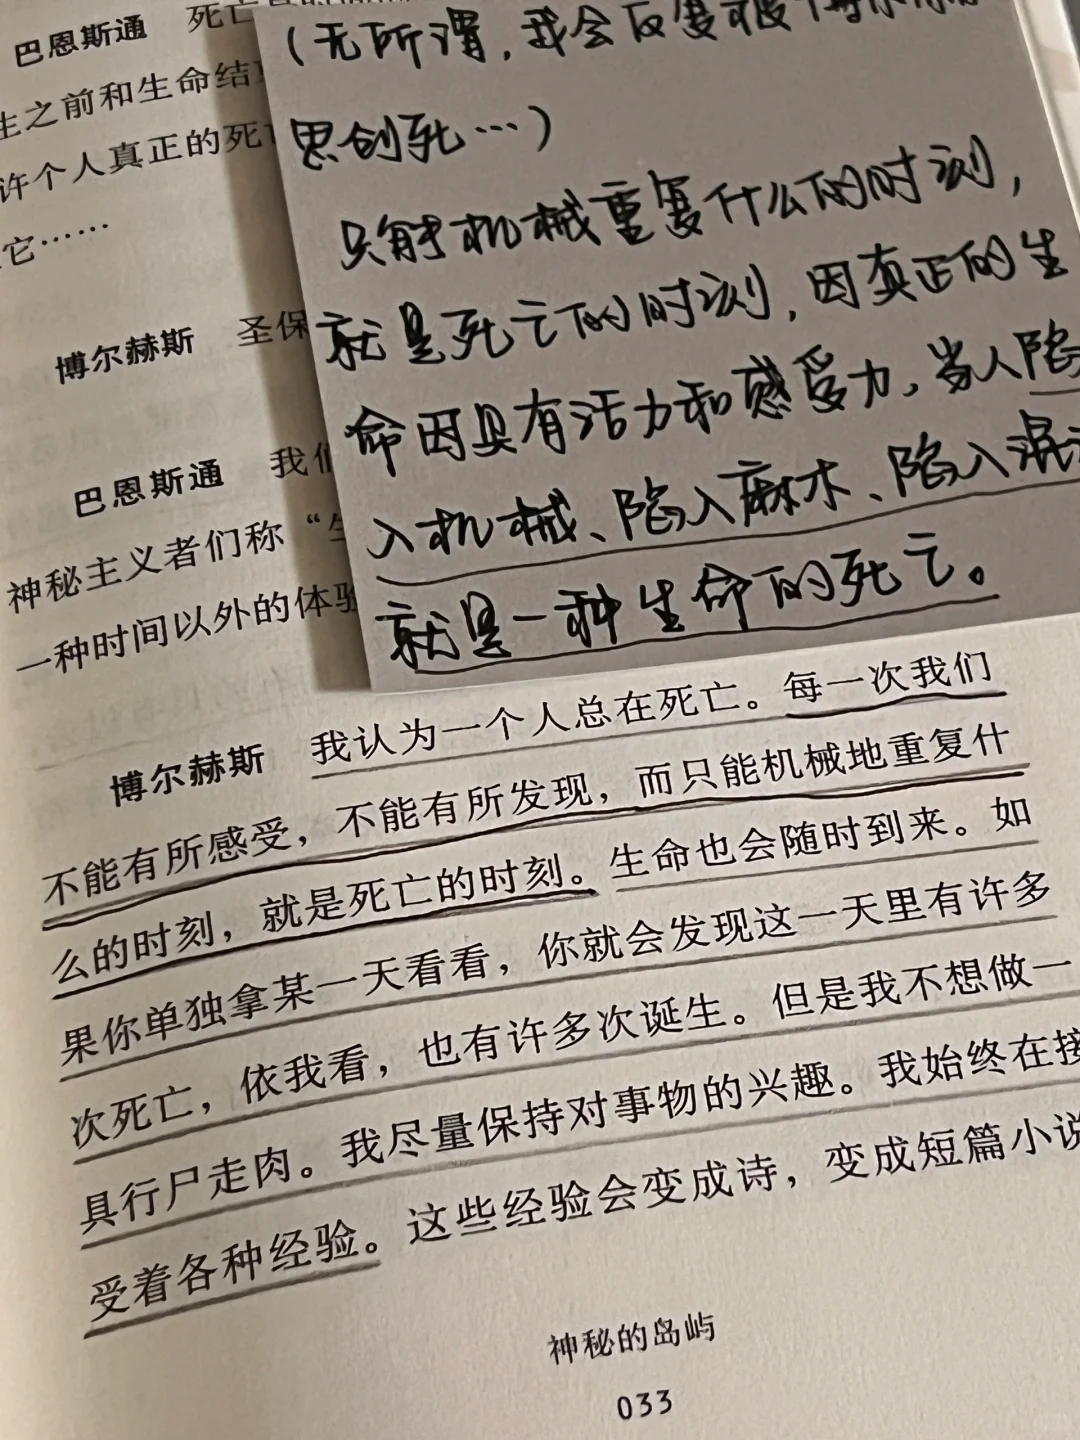 巴恩斯通 死亡
生之前和生命结
许个人真正的死
它……
博尔赫斯 圣保
巴恩斯通 我们
神秘主义者们称“生
一种时间以外的体验
（无所谓，我会反复被博尔赫斯
思创死…）
只能机械重复什么的时刻，
就是死亡的时刻，因真正的生
命因具有活力和感受力，当人陷
入机械、陷入麻木、陷入混
就是一种生命的死亡。
博尔赫斯 我认为一个人总在死亡。每一次我们
不能有所感受，不能有所发现，而只能机械地重复什
么的时刻，就是死亡的时刻。生命也会随时到来。如
果你单独拿某一天看看，你就会发现这一天里有许多
次死亡，依我看，也有许多次诞生。但是我不想做一
具行尸走肉。我尽量保持对事物的兴趣。我始终在接
受着各种经验。这些经验会变成诗，变成短篇小说
神秘的岛屿
033